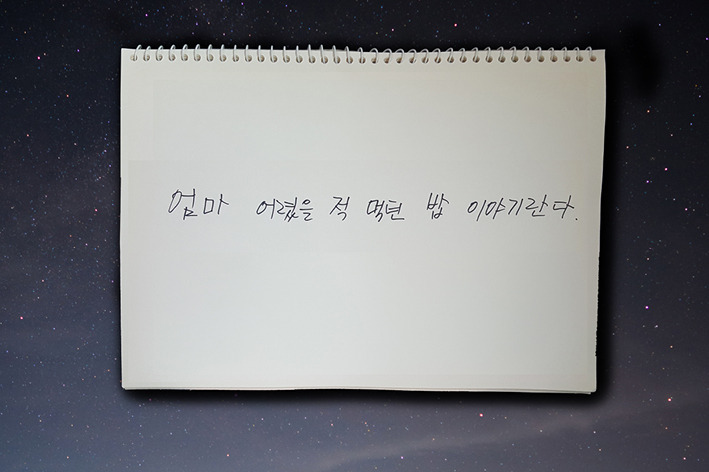 엄마 어렸을 적 먹던 밥 이야기란다.